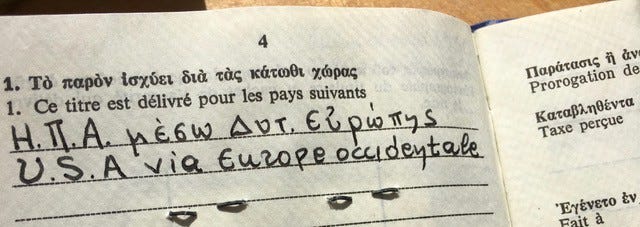 4
1. Τὸ παρὸν ἰσχύει διὰ τὰς κάτωθι χώρας
1. Ce titre est délivré pour les pays suivants
Η.Π.Α. μέσω Δυτ. Εὐρώπης
U.S.A via Europe occidentale
Παράτασις ἢ ἀν
Prorogation de
Καταβληθέντα
Taxe perçue
Ἐγένετο ἐν
Fait à